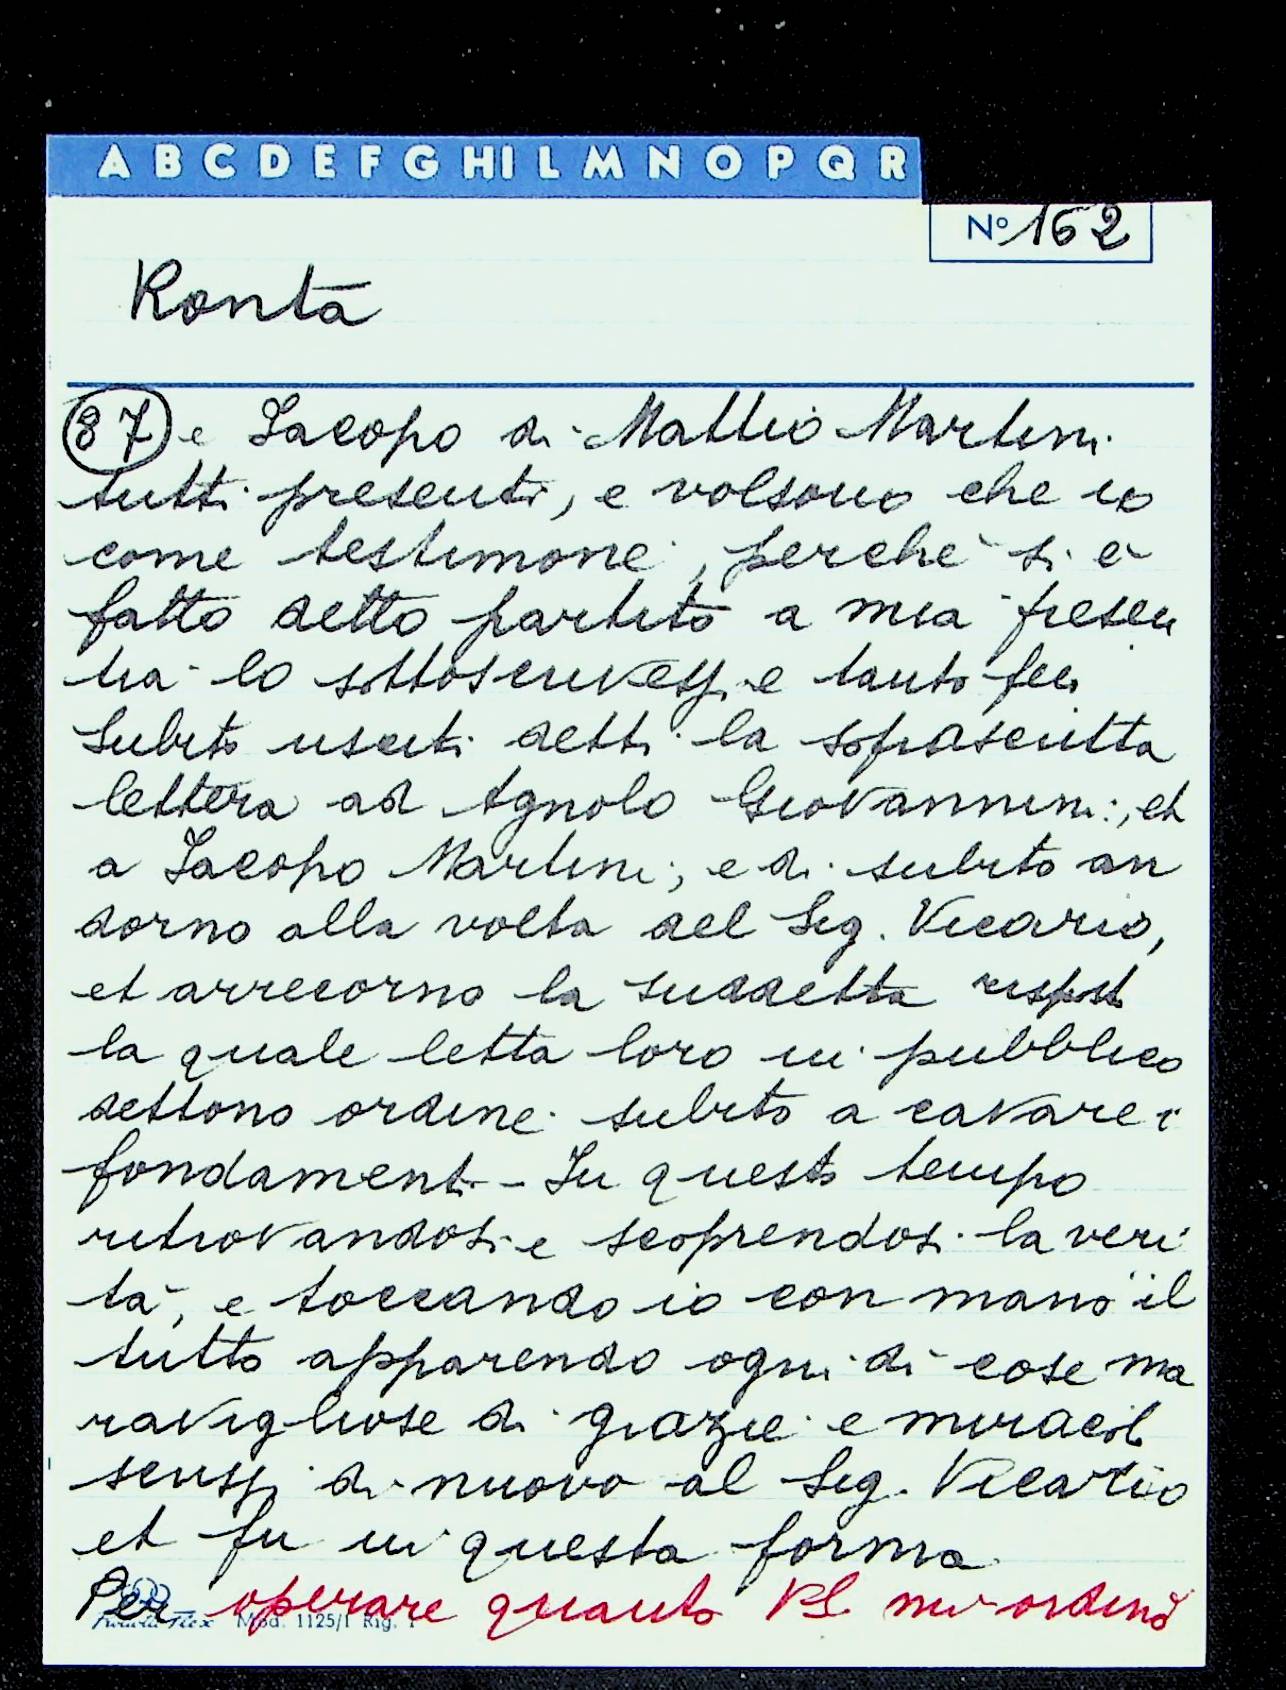 A B C D E F G HI L M N O P Q R
N° 162
Ronta
87 e Iacopo di Matteo Martini
tutti presenti, e volsono che io
come testimone, perché si è
fatto detto partito a mia presen
tia lo sottoscrivessi e tanto feci
Subito usciti detti la soprascritta
lettera ad Agnolo Giovannini, et
a Iacopo Martini; e di subito an
dorno alla volta del Sig. Vicario,
et arrecorno la suddetta rispost
la quale letta loro in pubblico
dettono ordine subito a cavare i
fondamenti - In questo tempo
ritrovandosi e scoprendosi la veri
tà, e toccando io con mano il
tutto apparendo ogni dì cose ma
ravigliose di grazie e miracoli
scrissi di nuovo al Sig. Vicario
et fu in questa forma
Per operare quanto V.S. mi ordinò
Mod. 1125/1 Rig. 1